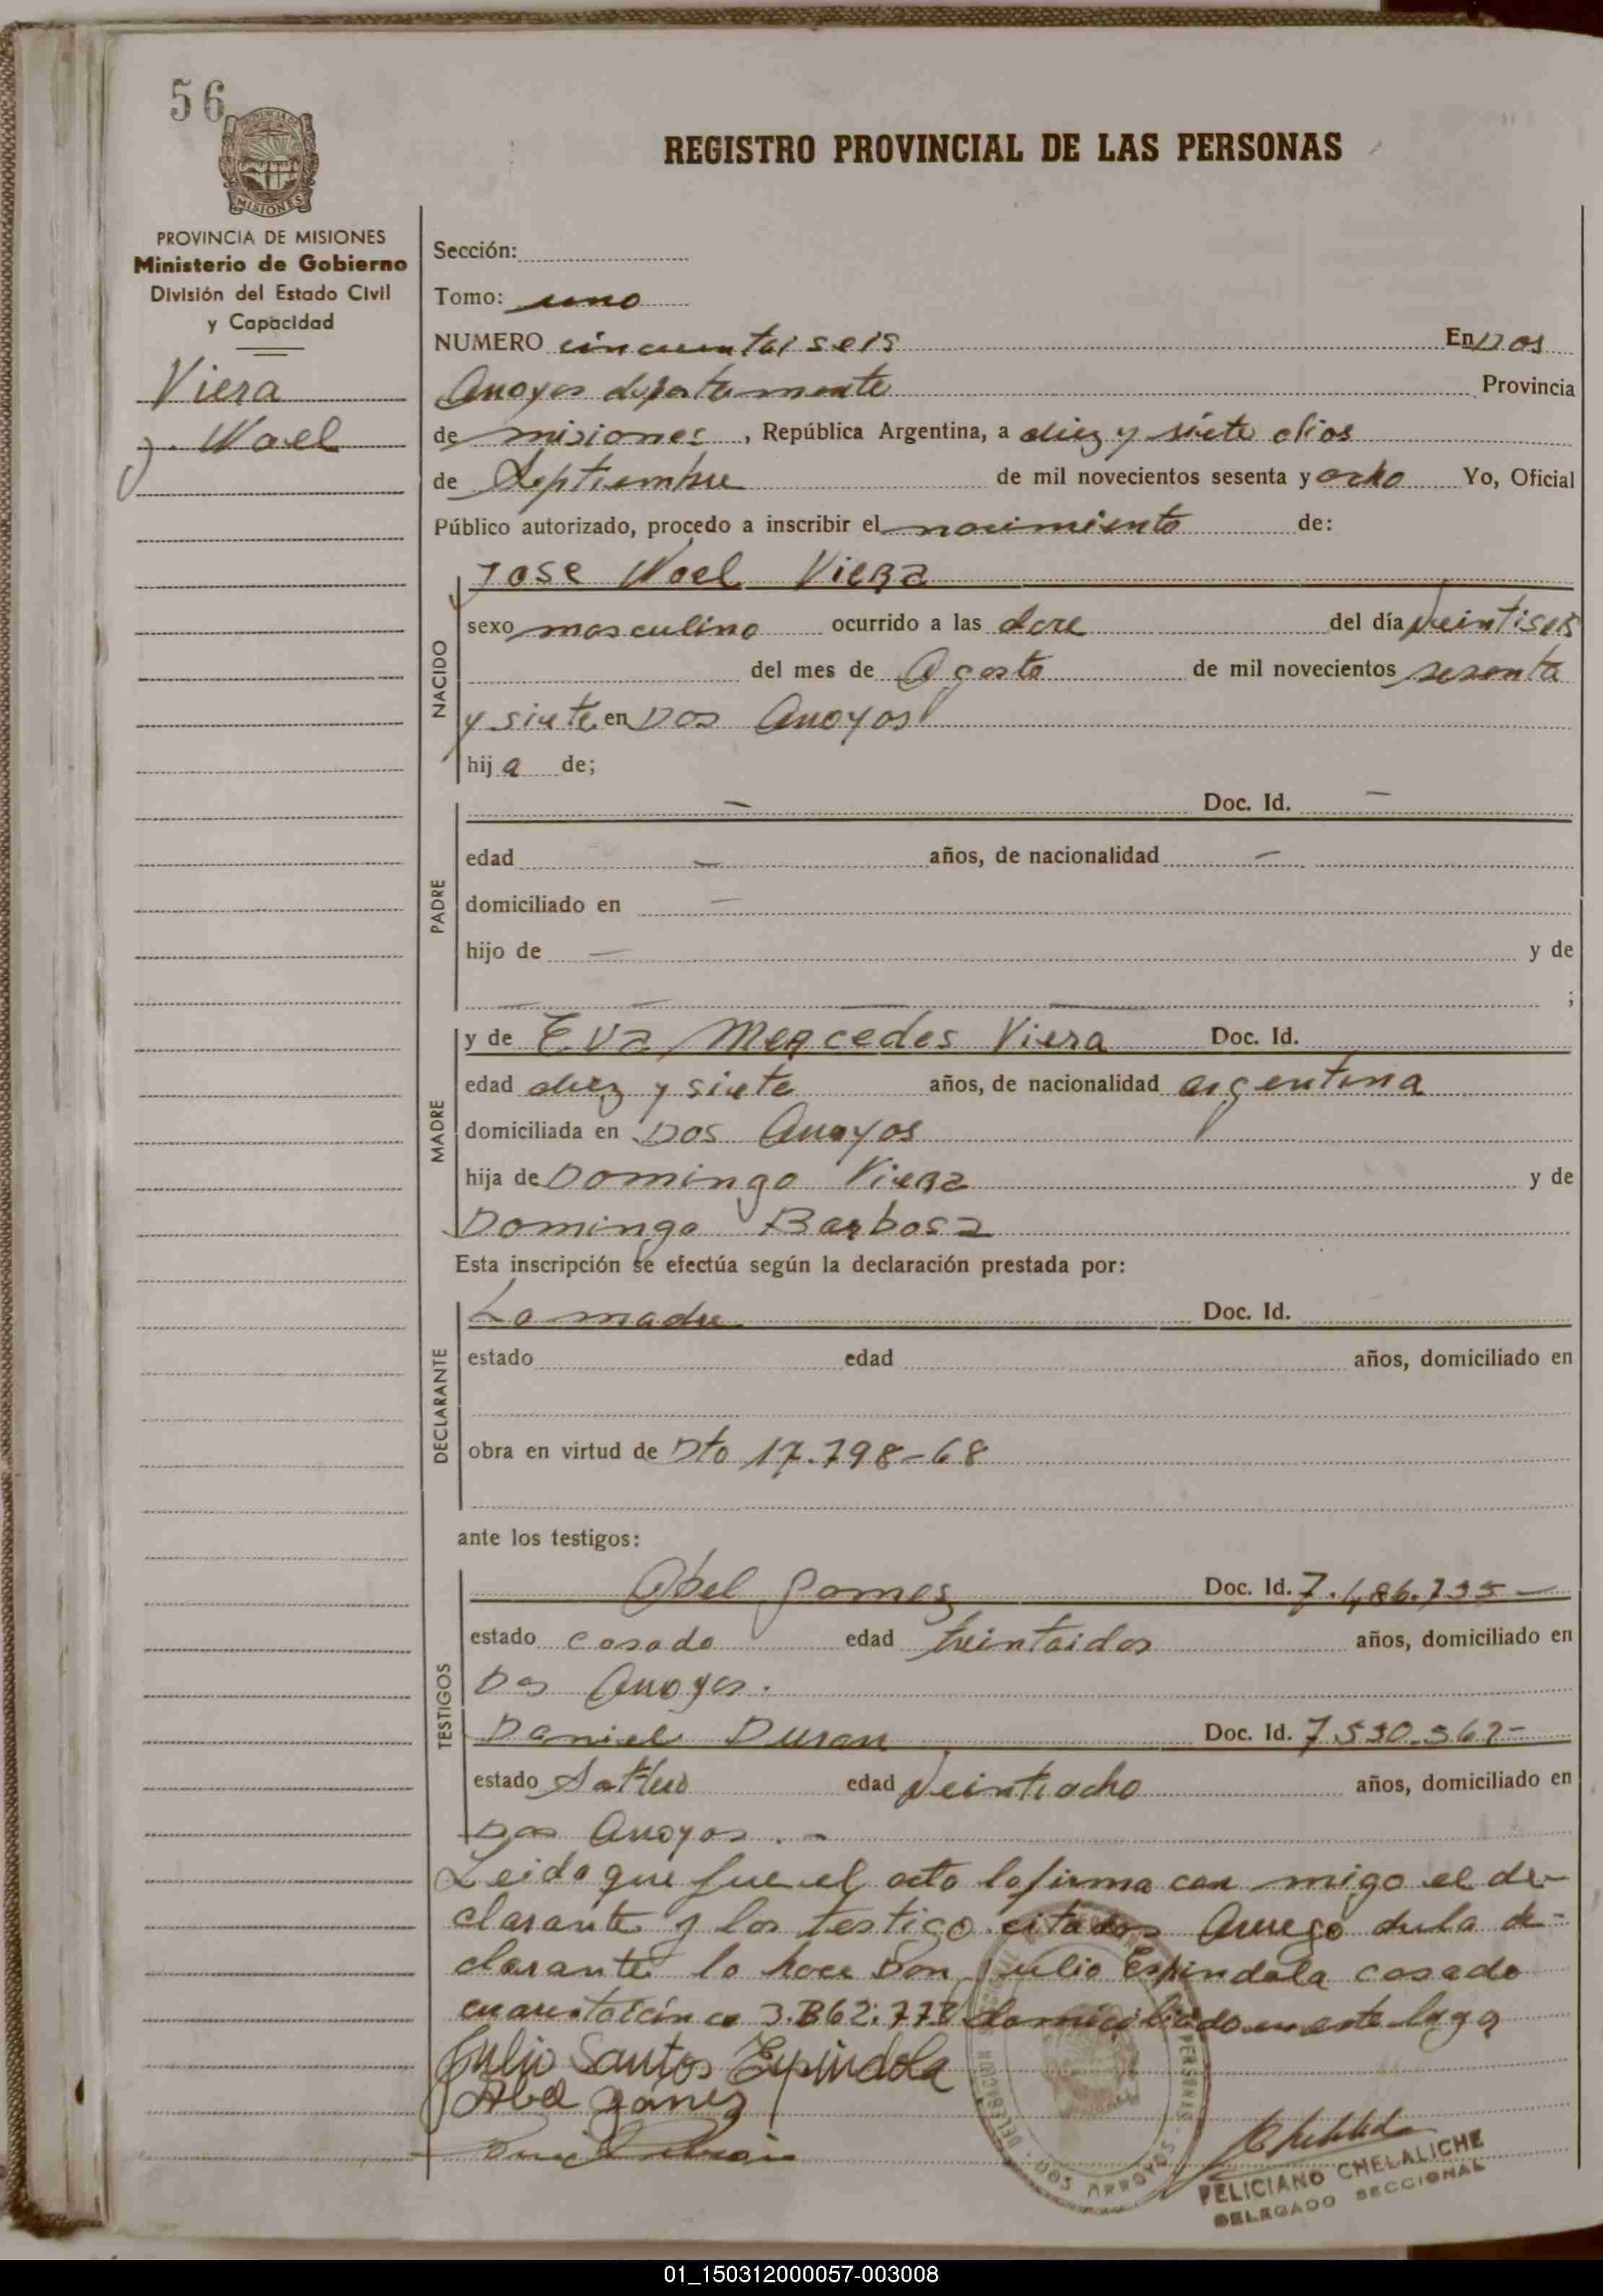 56
PROVINCIA DE
MISIONES
REGISTRO PROVINCIAL DE LAS PERSONAS
PROVINCIA DE MISIONES
Ministerio de Gobierno
División del Estado Civil
y Capacidad
Viera
J. Noel
Sección:
Tomo: uno
NUMERO cincuentai seis En Dos
Arroyos departamente Provincia
de misiones, República Argentina, a diez y siete dios
de Septiembre de mil novecientos sesenta y ocho Yo, Oficial
Público autorizado, procedo a inscribir el nacimiento de:
NACIDO
Jose Noel Viera
sexo masculino ocurrido a las doce del día veintiseis
del mes de Agosto de mil novecientos sesenta
y siete en Dos Arroyos
hij a de;
PADRE
— Doc. Id. —
edad — años, de nacionalidad —
domiciliado en —
hijo de — y de
— — — — ;
MADRE
y de Eva Mercedes Viera Doc. Id.
edad diez y siete años, de nacionalidad argentina
domiciliada en Dos Arroyos
hija de Domingo Viera y de
Dominga Barbosa
Esta inscripción se efectúa según la declaración prestada por:
DECLARANTE
La madre Doc. Id.
estado edad años, domiciliado en
obra en virtud de Dto 17.798-68
ante los testigos:
TESTIGOS
Abel Gomes Doc. Id. 7.486.735 —
estado casado edad treintaidos años, domiciliado en
Dos Arroyos.
Daniel Duran Doc. Id. 7530.367-
estado edad veintiocho años, domiciliado en
Dos Arroyos. -
Leida que fue el acta la firma con migo el de-
clarante y los testigo citados Arruego de la de-
clarante lo hace Don Julio Espindola casado
cuarentaicinco 3.862.778 domiciliado en este
Julio Santos Espindola
Abel Gomez
DELEGACION
PERSONAS
DOS ARROYOS
FELICIANO CHELALICHE
DELEGADO SECCIONAL
01_150312000057-003008